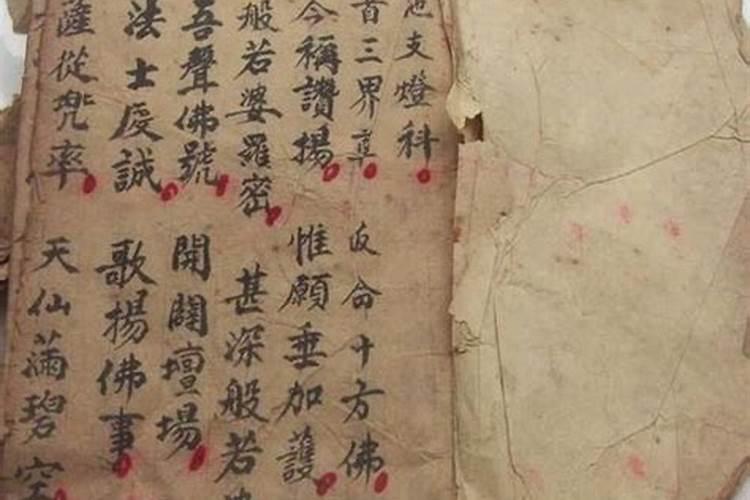 地支燈科
首三界尊 皈命十方佛
今稱讚揚 惟願垂加護
般若婆羅密 甚深般若
吾聲佛號 開闢壇場
法士虔誠 歌揚佛事
薩從兜率 天仙滿碧空